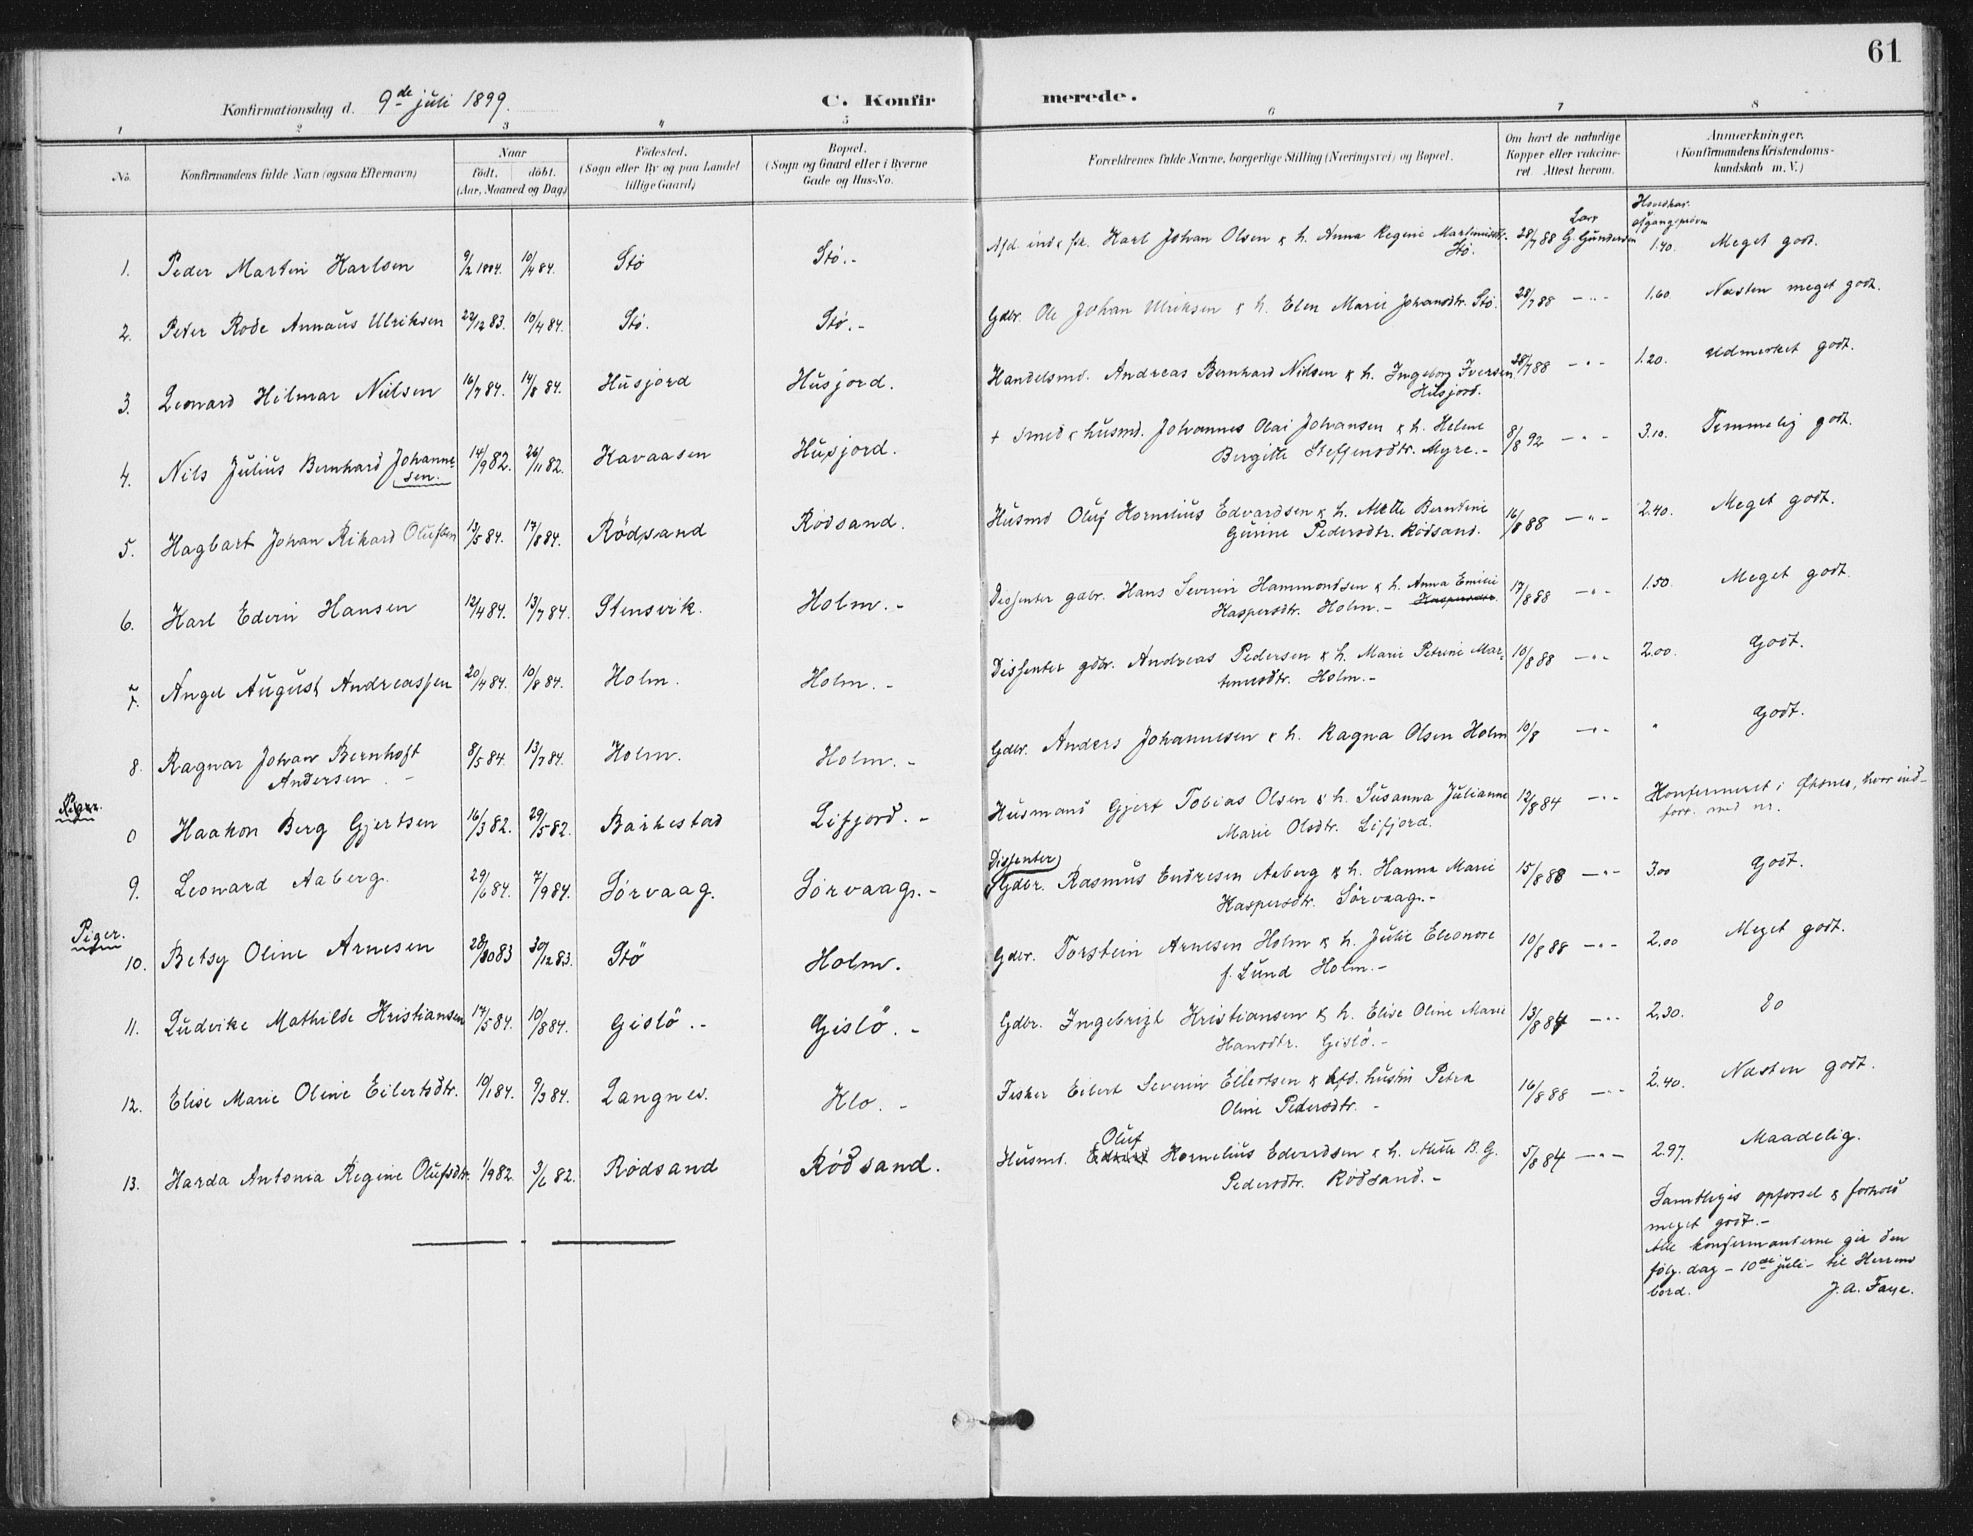 61
Konfirmationsdag d. 9de juli 1899.
C. Konfirmerede.
1 2 3 4 5 6 7 8
No. Konfirmandens fulde Navn (ogsaa Efternavn)
Naar födt. döbt. (Aar, Maaned og Dag)
Födested. (Sogn eller By og paa Landet tillige Gaard)
Bopæl. (Sogn og Gaard eller i Byerne Gade og Hus-No.
Forældrenes fulde Navne, borgerlige Stilling (Næringsvei) og Bopæl.
Om havt de naturlige Kopper eller vakcineret Attest herom.
Anmærkninger. (Konfirmandens Kristendomskundskab m. V.)
Hovedkar. afgangsprøven
1. Peder Martin Karlsen 9/2 1884. 10/4 84. Stö Stö.- Afd. inds. fsk. Karl Johan Olsen & h. Anna Regine Martinusdtr. Stö. 28/7 88 G. Gundersen 1.40. Meget godt.
2. Peter Rode Annæus Ulriksen 22/12 83. 10/4 84. Stö. Stö.- Gdbr. Ole Johan Ulriksen & h. Elen Marie Johansdtr. Stö. 28/7 88 -"- 1.60 Næsten meget godt.
3. Leonard Hilmar Nilsen 16/7 84. 14/8 84. Husjord Husjord. Handelsmd. Andreas Bernhard Nilsen & h. Ingeborg Iversen Husjord. 28/7 88 -"- 1.20. Udmerket godt.
4. Nils Julius Bernhard Johannesen. 14/9 82. 26/11 82. Kavaasen Husjord. + Smed & husmd. Johannes Olai Johansen & h. Helene Bergitte Steffensdtr. Myre.- 8/8 92 -"- 3.10. Temmelig godt.
5. Hagbart Johan Rikard Olufsen 13/5 84. 17/8 84. Rödsand Rödsand. Husmd Oluf Kornelius Edvardsen & h. Mette Berntine Gurine Pedersdtr. Rödsand. 16/8 88 -"- 2.40. Meget godt.
6. Karl Edvin Hansen 12/4 84. 13/7 84. Stensvik. Holm.- Dissenter gdbr. Hans Severin Hammondsen & h. Anna Emilie Kaspersdtr. Holm.- Kaspersdtr. 17/8 88 -"- 1.50. Meget godt.
7. Angel August Andreassen 20/4 84. 10/8 84. Holm. Holm.- Dissenter gdbr. Andreas Pedersen & h. Marie Petrine Martinusdtr. Holm.- 10/8 88 -"- 2.00. Godt.
8. Ragnar Johan Bernhoft Andersen.- 8/5 84. 13/7 84. Holm. Holm.- Gdbr. Anders Johannesen & h. Ragna Olsen Holm 10/8 -"- " Godt.
Piger.
0 Haakon Berg Gjertsen 16/3 82. 29/5 82. Barkestad Lifjord.- Husmand Gjert Tobias Olsen & h. Susanna Julianne Marie Olsdtr. Lifjord. 12/8 84 -"- Konfirmeret i Øksnes, hvor indførr. med nr.
9. Leonard Aaberg. 29/6 84. 7/9 84. Sörvaag. Sörvaag.- Dissenter Gdbr. Rasmus Endresen Aaberg & h. Hanna Marie Kaspersdtr. Sörvaag.- 15/8 88 -"- 3.00 Godt.
Piger.
10. Betsy Oline Arnesen 28/10 83 30/12 83. Stö Holm. Gdbr. Torstein Arnesen Holm & h. Julie Eleonore f. Lund Holm.- 10/8 88 -"- 2.00 Meget godt.
11. Ludvike Mathilde Kristiansen 17/5 84. 10/8 84. Gislö.- Gislö.- Gdbr. Ingebrigt Kristiansen & h. Elise Oline Marie Hansdtr. Gislö.- 13/8 84 -"- 2.30. Do
12. Elise Marie Oline Eilertsdtr. 10/1 84. 9/3 84. Langnes. Klo.- Fisker Eilert Severin Ellertsen & afd. hustru Petra Oline Pedersdtr.- 16/8 88 -"- 2.40. Næsten godt.
13. Harda Antonia Regine Olufsdtr. 1/9 82. 3/6 82. Rödsand Rödsand. Husmd. Oluf Kornelius Edvardsen & h. Mette B. G. Pedersdtr. Rödsand.- 5/8 84 -"- 2.97. Maadelig.
Samtliges opførsel & forhold
meget godt.-
Alle konfirmanterne gik den
følg. dag - 10de juli - til Herrens
bord. J. A. Faye.